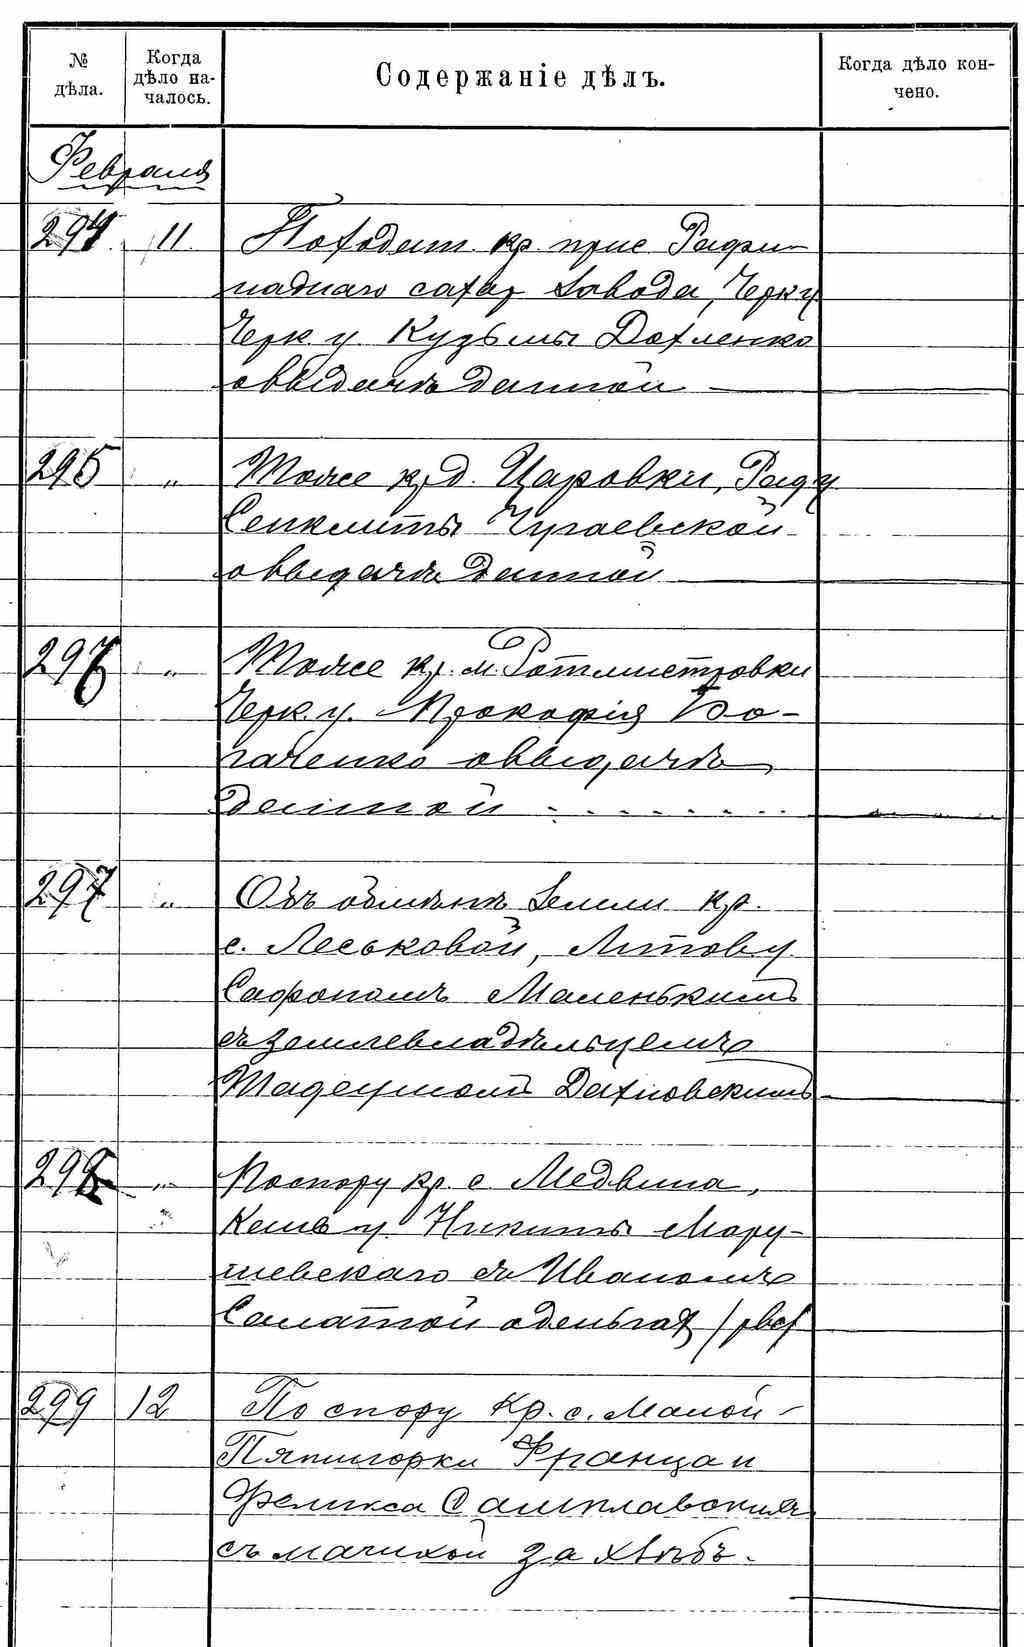 № дѣла.
Когда дѣло на-
чалось.
Содержаніе дѣлъ.
Когда дѣло кон-
чено.
Февраля
294 11. По ходат. кр. при Рафи-
наднаго сахар завода, Черк у
Черк. у. Кузьмы Дахленко
о выдачѣ данной
295 " Тоже кр. д. Царовки, Рад у
Синклиты Чугаевской
о выдачѣ данной
296 " Тоже кр. м. Ротмистровки
Черк. у. Прокофія Бо-
гаченко о выдачѣ
данной
297 " Объ обмѣнѣ земли кр.
с. Леськовой, Липов у
Сафрономъ Маленькимъ
съ землевладѣльцемъ
Тадеушомъ Дахновскимъ
298 " По спору кр. с. Медвина,
Канев у. Никиты Мару-
шевскаго съ Иваномъ
Салатой о деньгах
299 12 По спору Кр. с. Малой-
Пятигорки Франца и
Феликса Самплавскихъ
съ мачихой за хлѣбъ.